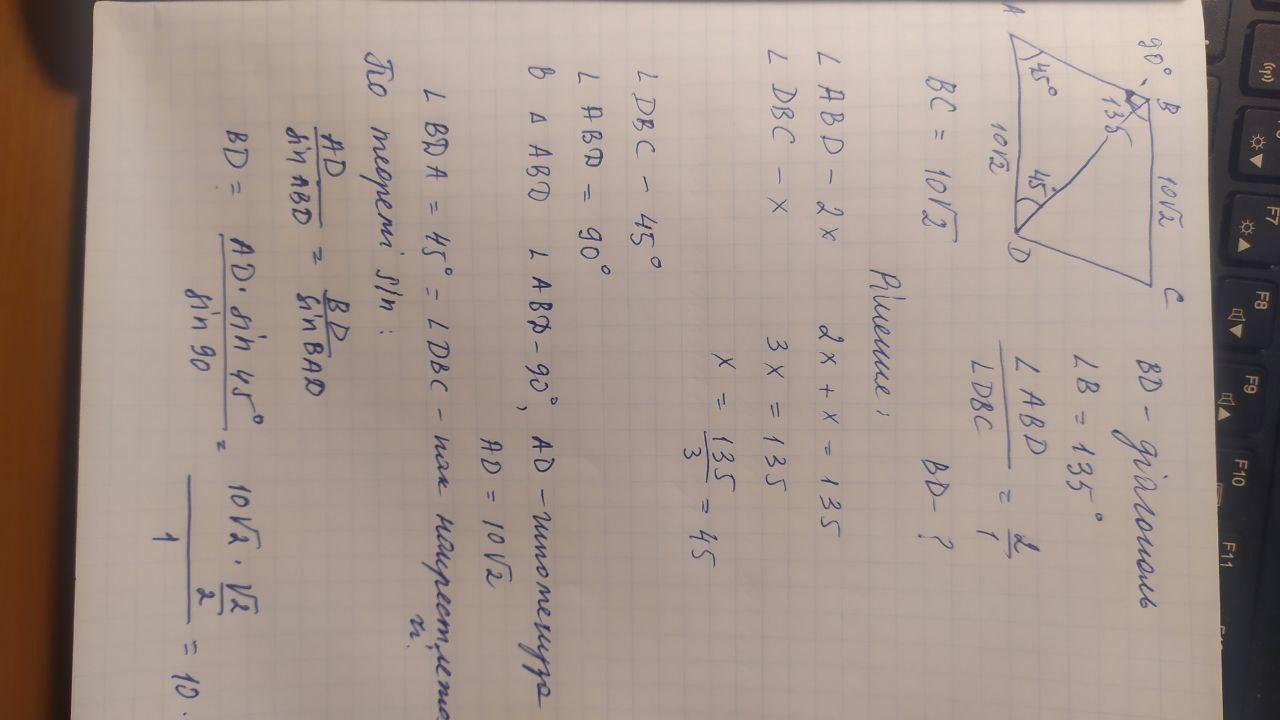 90° B 10√2 C
135
A 45° 10√2 45° D
BD - діагональ
∠B = 135°
∠ABD / ∠DBC = 2/1
BC = 10√2 BD - ?
Рішення:
∠ABD - 2x 2x + x = 135
∠DBC - x 3x = 135
x = 135/3 = 45
∠DBC - 45°
∠ABD = 90°
В Δ ABD ∠ABD - 90°, AD - гіпотенуза
AD = 10√2
∠BDA = 45° = ∠DBC - как
По теореті sin:
AD / sin ABD = BD / sin BAD
BD = AD · sin 45° / sin 90 = 10√2 · √2/2 / 1 = 10.
F7
F8
F9
F10
F11